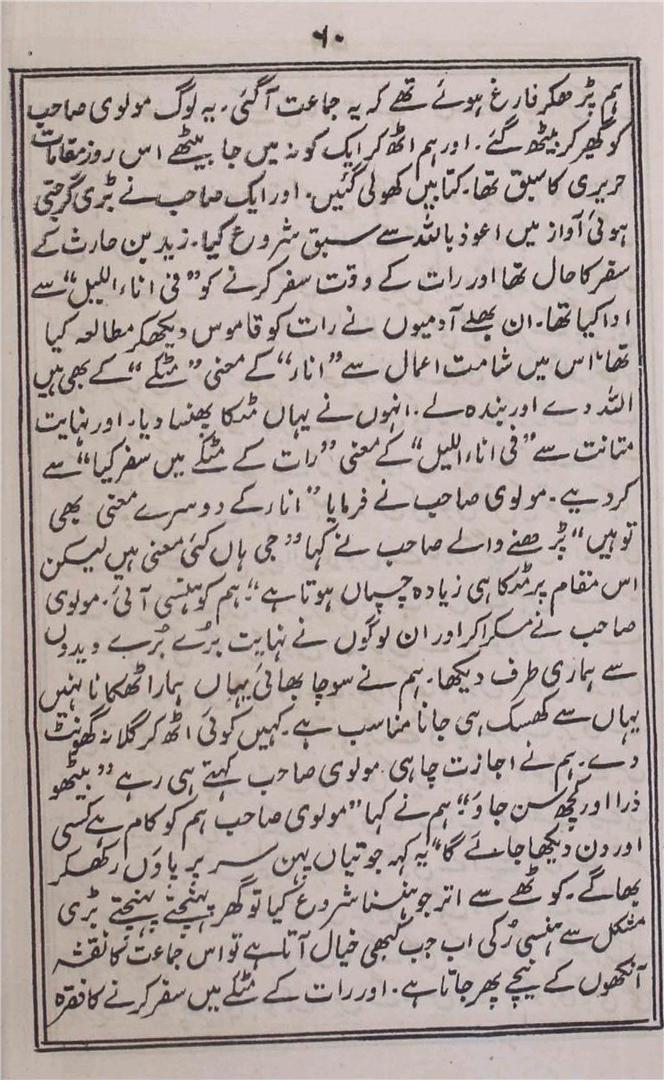 ۶۰
ہم پڑھکر فارغ ہوئے تھے کہ یہ جماعت آگئی۔ یہ لوگ مولوی صاحب
کو گھیر کر بیٹھ گئے۔ اور ہم اٹھ کر ایک کونہ میں جا بیٹھے اس روز مقامات
حریری کا سبق تھا۔ کتابیں کھولی گئیں۔ اور ایک صاحب نے بڑی گرجتی
ہوئی آواز میں اعوذ باللہ سے سبق شروع کیا۔ زید بن حارث کے
سفر کا حال تھا اور رات کے وقت سفر کرنے کو "فی اناء اللیل" سے
ادا کیا تھا۔ ان بھلے آدمیوں نے رات کو قاموس دیکھکر مطالعہ کیا
تھا اس میں شامت اعمال سے "اناء" کے معنی "مٹکے" کے بھی ہیں
اللہ دے اور بندہ لے۔ انہوں نے یہاں مٹکا پھنسا دیا۔ اور نہایت
متانت سے "فی اناء اللیل" کے معنی "رات کے مٹکے میں سفر کیا" سے
کر دیے۔ مولوی صاحب نے فرمایا "اناء کے دوسرے معنی بھی
تو ہیں" پڑھنے والے صاحب نے کہا "جی ہاں کئی معنی ہیں لیکن
اس مقام پر مٹکا ہی زیادہ چسپاں ہوتا ہے"۔ ہم کو ہنسی آئی۔ مولوی
صاحب نے مسکرا کر اور ان لوگوں نے نہایت بُرے بُرے دیدوں
سے ہماری طرف دیکھا۔ ہم نے سوچا بھائی یہاں ہمارا ٹھکانا نہیں
یہاں سے کھسک ہی جانا مناسب ہے۔ کہیں کوئی اٹھ کر گلا نہ گھونٹ
دے۔ ہم نے اجازت چاہی مولوی صاحب کہتے ہی رہے "بیٹھو
ذرا اور کچھ سن جاؤ"۔ ہم نے کہا "مولوی صاحب ہم کو کام ہے کسی
اور دن دیکھا جائے گا" یہ کہہ جوتیاں پہن سر پر پاؤں رکھکر
بھاگے۔ کوٹھے سے اتر جو ہنسنا شروع کیا تو گھر پہنچتے پہنچتے بڑی
مشکل سے ہنسی رُکی اب جب کبھی خیال آتا ہے تو اس جماعت کا نقشہ
آنکھوں کے نیچے پھر جاتا ہے۔ اور رات کے مٹکے میں سفر کرنے کا فقرہ